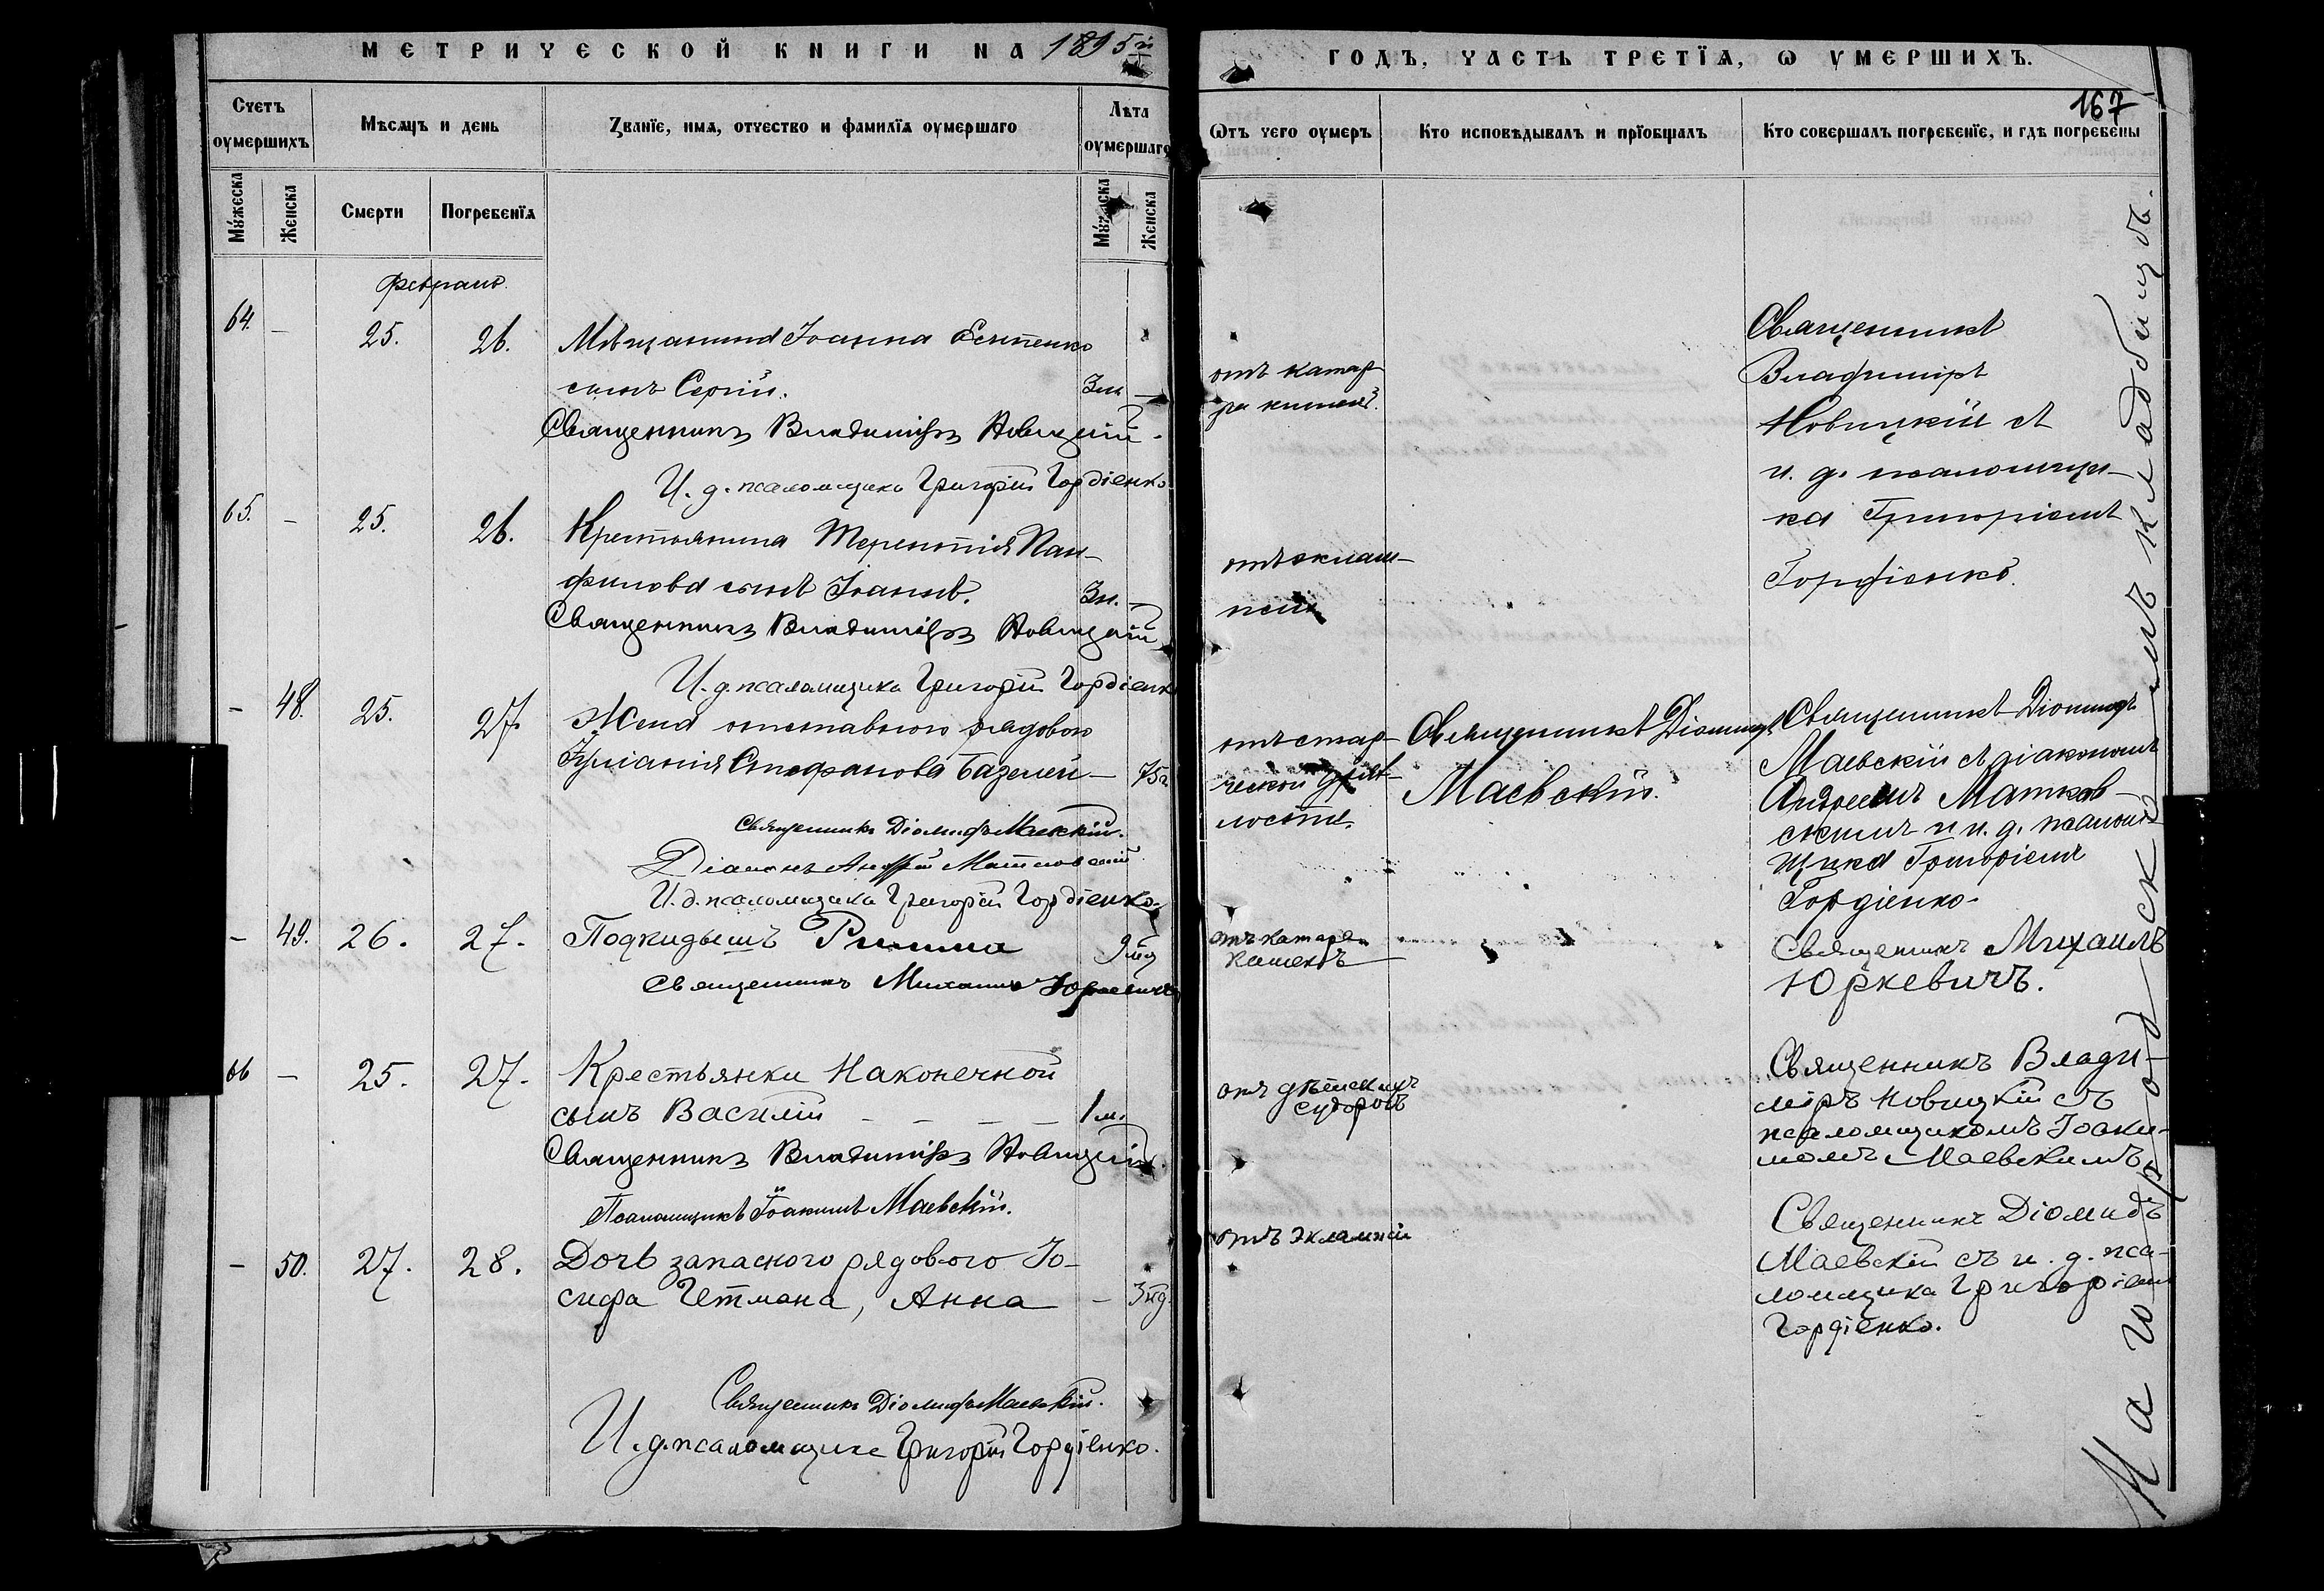 МЕТРИЧЕСКОЙ КНИГИ НА 1895й
ГОДЪ, ЧАСТЬ ТРЕТІѦ, Ѡ УМЕРШИХЪ.
167
Счетъ оумершихъ
Мѣсяцъ и день
Званїе, имѧ, отчество и фамилїѧ оумершаго
Лѣта оумершаго
Ѿтъ чего оумеръ
Кто исповѣдывалъ и прїобщалъ
Кто совершалъ погребенїе, и гдѣ погребены
Мужеска
Женска
Смерти
Погребенїѧ
Мужеска
Женска
Февраль
64. – 25. 26.
Мѣщанина Іоанна Есипенко
сынъ Сергій. 3м –
Священникъ Владиміръ Новицкій.
И. д. псаломщика Григорій Гордіенко
отъ катар-
ра кишекъ.
Священникъ
Владиміръ
Новицкій съ
и. д. псаломщи-
ка Григоріемъ
Гордіенко.
65. – 25. 26.
Крестьянина Терентія Пан-
филова сынъ Іоаннъ. 3м. –
Священникъ Владиміръ Новицкій
И. д. псаломщика Григорій Гордіенко
отъ эклам-
псіи
– 48. 25. 27.
Жена отставного рядового
Іуліанія Стефанова Базелей – 75л
Священникъ Діомидъ Маевскій.
Діаконъ Андрей Матковскій
И. д. псаломщика Григорій Гордіенко
отъ стар-
ческой дрях-
лости.
Священникъ Діомидъ
Маевскій.
Священникъ Діомидъ
Маевскій съ діакономъ
Андреемъ Матков-
скимъ и и. д. псалом-
щика Григоріемъ
Гордіенко.
– 49. 26. 27.
Подкидышъ Римма
Священникъ Михаилъ Юркевичъ
отъ катара
кишекъ
Священникъ Михаилъ
Юркевичъ.
66 – 25. 27.
Крестьянки Наконечной
сынъ Василій – – – – 1м.
Священникъ Владиміръ Новицкій.
Псаломщикъ Іоакимъ Маевскій.
отъ дѣтскихъ
судорогъ
Священникъ Влади-
міръ Новицкій съ
псаломщикомъ Іоаки-
момъ Маевскимъ
– 50. 27. 28.
Дочь запасного рядового Іо-
сифа Гетмана, Анна –
Священникъ Діомидъ Маевскій.
И. д. псаломщика Григорій Гордіенко.
отъ эклампсіи
Священникъ Діомидъ
Маевскій съ и. д. пса-
ломщика Григоріемъ
Гордіенко.
На городскомъ кладбищѣ.